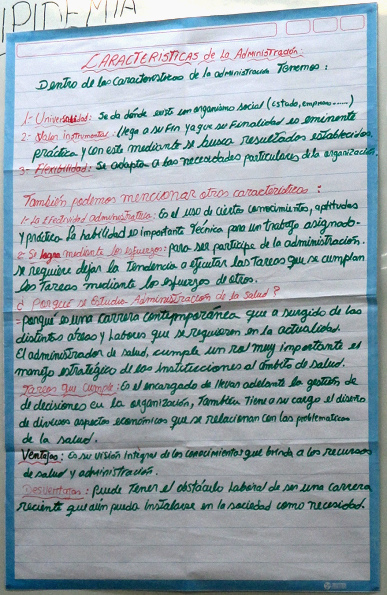 IPIDEMIA
CARACTERISTICAS de La Administración.
Dentro de las características de la administración Tenemos:
1- Universalidad: Se da dónde existe un organismo social (Estado, empresas......)
2- Valor Instrumental: llega a su Fin ya que su Finalidad es eminente
práctica y con este mediante se busca resultados establecidos.
3- Flexibilidad: Se adapta a las necesidades particulares de la organización.
También podemos mencionar otras características:
1- La Efectividad administrativa: Es el uso de cierto conocimientos, aptitudes
y práctica. La habilidad es importante Técnica para un trabajo asignado.
2- Se logra mediante los esfuerzos: para ser participe de la administración.
se requiere dejar la tendencia a ejecutar las Tareas que se cumplan
los Tareas mediante los esfuerzos de otros.
¿ Porqué se Estudia Administración de la Salud?
- porqué es una carrera contemporánea que a surgido de las
distintas áreas y Labores que se requieren en la actualidad.
El administrador de salud, cumple un rol muy importante el
manejo estratégico de las Instituciones al ámbito de salud.
Tareas que Cumple: Es el encargado de llevar adelante la gestión de
de decisiones en la organización, También Tiene a su cargo el diseño
de diversos aspectos económicos que se relacionan con las problematicas
de la salud.
Ventajas: Es su visión Integral de los conocimientos que brinda a los recursos
de salud y administración.
Desventajas: puede Tener el obstáculo Laboral de ser una carrera
reciente que aún pueda Instalarse en la sociedad como necesidad.